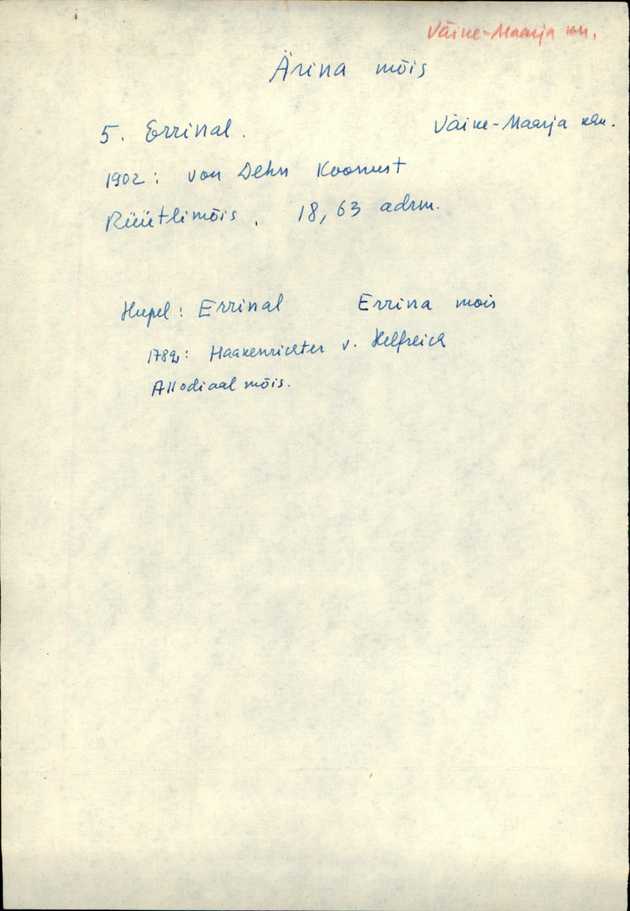 Väike-Maarja khk.
Ärina mõis
5. Errinal. Väike-Maarja khk.
1902: von Dehn Koonust
Rüütlimõis. 18,63 adrm.
Hupel: Errinal Errina mois
1782: Haakenrichter v. Helfreich
Allodiaal mõis.